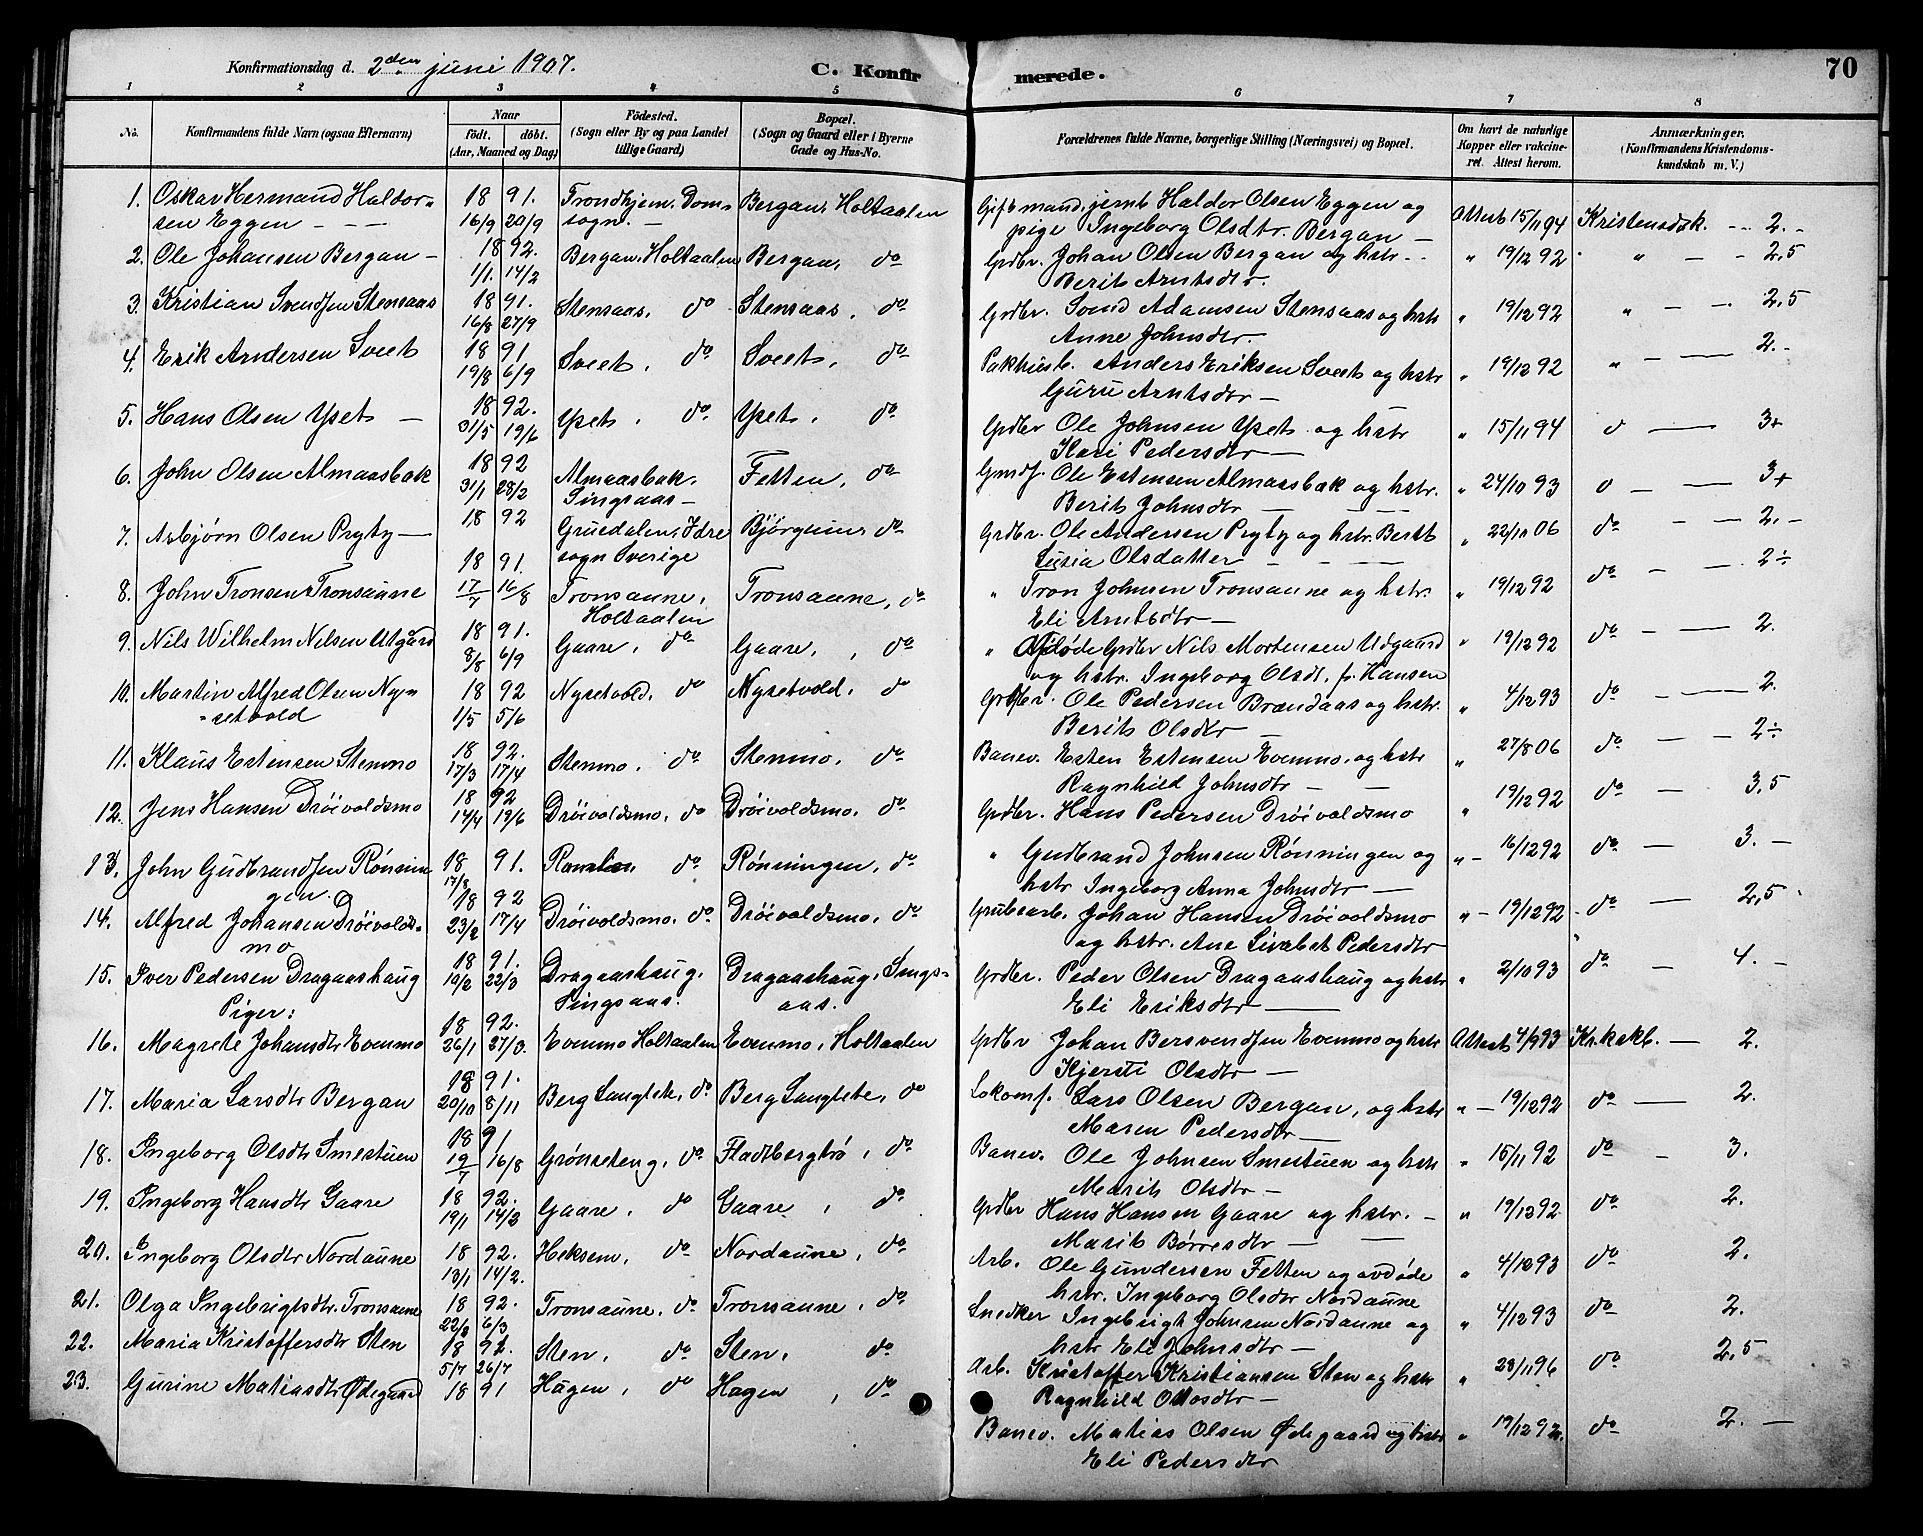 Konfirmationsdag d. 2den juni 1907.
C. Konfirmerede.
70
1 2 3 4 5 6 7 8
No.
Konfirmandens fulde Navn (ogsaa Efternavn)
Naar
født. døbt.
(Aar, Maaned og Dag)
Fødested.
(Sogn eller By og paa Landet
tillige Gaard)
Bopæl.
(Sogn og Gaard eller i Byerne
Gade og Hus-No.
Forældrenes fulde Navne, borgerlige Stilling (Næringsvei) og Bopæl.
Om havt de naturlige
Kopper eller vakcine-
ret. Attest herom.
Anmærkninger.
(Konfirmandens Kristendoms-
kundskab m. V.)
1. Oskar Hermand Haldor- 18 91. Trondhjem. Dom- Bergan, Holtaalen Gift mand, jernb Haldor Olsen Eggen og Attest 15/11 94 Kristensdsk. -- 2.-
sen Eggen - - - 16/9 20/9 sogn. - pige Ingeborg Olsdtr. Bergan -
2. Ole Johansen Bergan - 18 92. Bergan, Holtaalen Bergan, do Grdbr. Johan Olsen Bergan og hstr. - - " 19/12 92 " - - 2,5
1/1. 14/2 Berit Arntsdtr.
3. Kristian Svendsen Stensaas 18 91. Stensaas, do Stensaas, do Grdbr. Svend Adamsen Stensaas og hstr " 19/12 92 " - - 2,5
16/8 27/9 Anne Johnsdtr.
4. Erik Andersen Sveet 18 91 Sveet, do Sveet, do Pakhusb. Anders Eriksen Sveet og hstr " 19/12 92 " - - 2.-
19/8 6/9 Guru Arntsdtr -
5. Hans Olsen Yset - 18 92. Yset, do Yset, do Grdbr Ole Johnsen Yset og hstr " 15/11 94 - 3+
31/5 19/6 Kari Pedersdtr -
6. John Olsen Almaasbak 18 92 Almaasbak, Fetten, do Ole Estensen Almaasbak og hstr. " 24/10 93 - - 3+
31/1 28/2 Singsaas - Berit Johnsdtr - - -
7. Asbjørn Olsen Prytz - 18 92 Gruedalen, Idre Bjørgum, do Grdbr. Ole Andersen Prytz og hstr. Berit " 22/10 06 do - - 2.-
sogn Sverige Lusia Olsdatter - - -
8. John Tronsen Tronsaune 18 91. Tronsaune, Tronsaune, do " Tron Johnsen Tronsaune og hstr. " 19/12 92 do - - 2÷
17/7 16/8 Holtaalen Eli Arntsdtr -
9. Nils Wilhelm Nilsen Utgård 18 91. Gaare, do Gaare, do " Afdøde Grdbr Nils Mortensen Udgaard " 19/12 92 do - - 2.
8/8 6/9 og hstr. Ingeborg Olsdt. f. Hansen
10. Martin Alfred Olsen Ny- 18 92 Nysetvold, do Nysetvold, do Grdbr. Ole Pedersen Brændaas og hstr. " 4/12 93 do - - 2.
setvold 1/5 5/6 Berit Olsdtr -
11. Klaus Estensen Stenmo 18 92. Stenmo, do Stenmo, do Banev. Esten Estensen Evenmo, og hstr " 27/8 06 do - - 2÷
17/3 17/4 Ragnhild Johnsdtr - -
12. Jens Hansen Drøivoldsmo 18 92 Drøivoldsmo, do Drøivoldsmo, do Grdbr. Hans Pedersen Drøivoldsmo " 19/12 92 do - 3,5
14/4 19/6
13. John Gudbrandsen Rønnin- 18 91. do Rønningen, do " Gudbrand Johnsen Rønningen og " - 16/12 92 do - 3. -
gen. 17/8 hstr Ingeborg Anna Johnsdtr -
14. Alfred Johansen Drøivolds- 18 92 Drøivoldsmo, do Drøivoldsmo, do Grubearb. Johan Hansen Drøivoldsmo " - 19/12 92 do - 2,5
mo 23/2 17/4 og hstr. Ane Livabet Pedersdtr
15. Iver Pedersen Dragaashaug 18 91. Dragaashaug, Dragaashaug, Sings- Grdbr. Peder Olsen Dragaashaug og hstr " 2/10 93 do - 4. -
19/2 22/3 Singsaas. aas. Eli Eriksdtr -
Piger:
16. Magrete Johansdtr Evenmo 18 92. Evenmo Holtaalen Evenmo, Holtaalen Grdbr Johan Bersvendsen Evenmo og hstr Attest 4/9 93 Kr.kskb. - 2.
26/1 27/3. Kjersti Olsdtr -
17. Maria Larsdtr Bergan 18 91. Berg Langlete, do Berg Langlete, do Lokomf. Lars Olsen Bergan, og hstr " - 19/12 92 do - 2.
20/10 8/11 Maren Pedersdtr -
18. Ingeborg Olsdtr Smestuen 18 91 Grønseteng, do Fladtbergtrø, do Banev. Ole Johnsen Smestuen og hstr " 15/11 92 do - 3.
19/7 16/8 Marit Olsdtr -
19. Ingeborg Hansdtr Gaare 18 92. Gaare, do Gaare, do Grdbr Hans Hansen Gaare og hstr. - " 19/12 92 do 2.
19/1 14/2 Marit Børresdtr - -
20. Ingeborg Olsdtr Nordaune 18 92. Heksem, do Nordaune, do Arb. Ole Gundersen Fetten og avdøde " 4/12 93 do 2.
13/1 14/2. hstr. Ingeborg Olsdtr Nordaune
21. Olga Ingebrigtsdtr. Tronsaune 18 92. Tronsaune, do Tronsaune, do Snedker Ingebrigt Johnsen Nordaune og " 4/12 93 do 2.
22/2 6/3 hstr Eli Johnsdtr -
22. Maria Kristoffersdtr Sten 18 92. Sten, do Sten, do Arb. Kristoffer Kristiansen Sten og hstr " 28/11 96 do 2,5
5/7 26/7 Ragnhild Olsdtr -
23. Gurine Matiasdtr Ødegaard 18 91 Hagen, do Hagen, do Banev. Matias Olsen Ødegaard og hstr " 19/12 92. do 2. -
Eli Pedersdtr